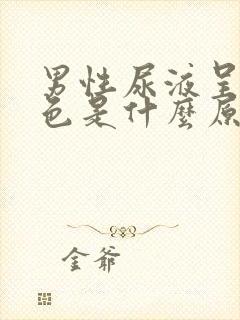 男性尿液呈
色是什麼原
金爺